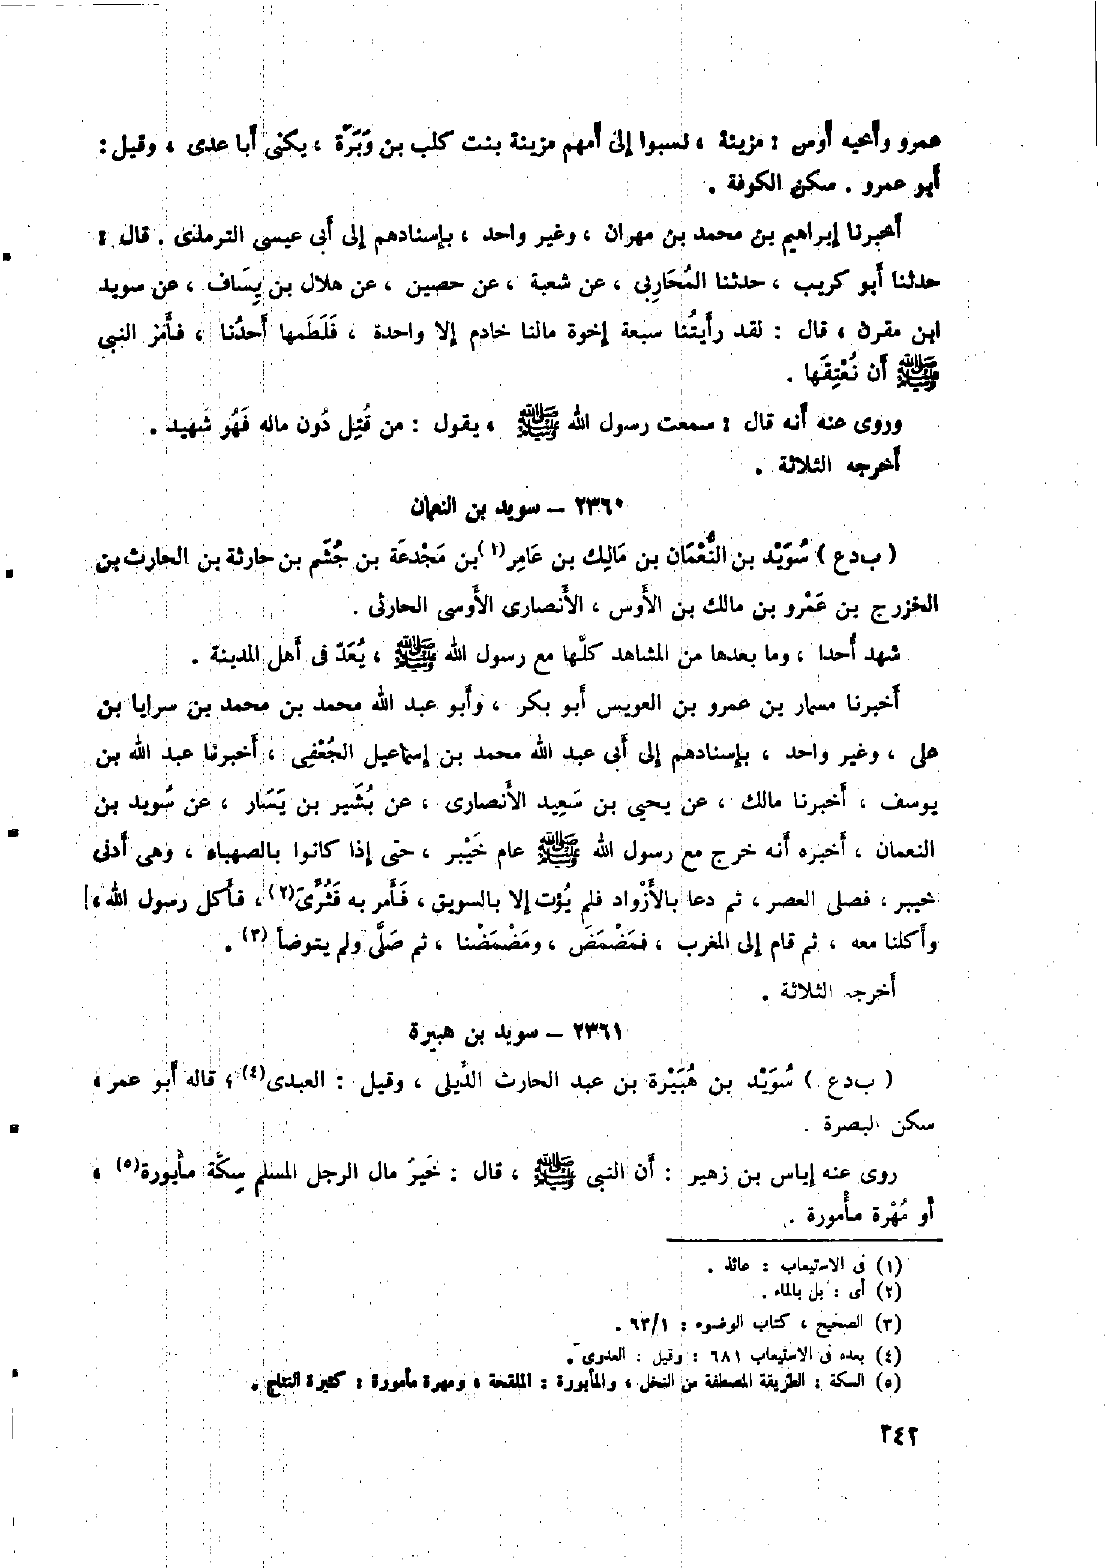 عمرو وأخيه أوس : مزينة ، نسبوا إلى أمهم مزينة بنت كلب بن وَبَرَّة ، يكنى أبا عدى ، وقيل :
أبو عمرو . سكن الكوفة .
أخبرنا إبراهيم بن محمد بن مهران ، وغير واحد ، بإسنادهم إلى أبى عيسى الترمذى . قال :
حدثنا أبو كريب ، حدثنا المُحَارِبى ، عن شعبة ، عن حصين ، عن هلال بن يِسَاف ، عن سويد
ابن مقرن ، قال : لقد رأيتُنا سبعة إخوة مالنا خادم إلا واحدة ، فَلَطَمها أحدُنا ، فأمر النبى
ﷺ أن نُعْتِقَها .
وروى عنه أنه قال : سمعت رسول الله ﷺ ، يقول : من قُتِل دُون ماله فَهُو شَهيد .
أخرجه الثلاثة .
٢٣٦٠ – سويد بن النعمان
( ب د ع ) سُوَيْد بن النُّعْمَان بن مَالِك بن عَامِر(١) بن مَجْدعَة بن جُشَم بن حارثة بن الحارث بن
الخزرج بن عَمْرو بن مالك بن الأَوس ، الأَنصارى الأَوسى الحارثى .
شهد أُحدا ، وما بعدها من المشاهد كلَّها مع رسول الله ﷺ ، يُعَدّ فى أهل المدينة .
أخبرنا مسمار بن عمرو بن العويس أبو بكر ، وأبو عبد الله محمد بن محمد بن سرايا بن
على ، وغير واحد ، بإسنادهم إلى أبى عبد الله محمد بن إسماعيل الجُعْفِى ، أخبرنا عبد الله بن
يوسف ، أخبرنا مالك ، عن يحيى بن سَعِيد الأَنصارى ، عن بُشَير بن يَسَار ، عن سُويد بن
النعمان ، أخبره أنه خرج مع رسول الله ﷺ عام خَيْبر ، حتى إذا كانوا بالصهباء ، وهى أدنى
خيبر ، فصلى العصر ، ثم دعا بالأَزْواد فلم يُؤت إلا بالسويق ، فَأَمر به فَثُرِّىَ(٢) ، فأكل رسول الله ،
وأكلنا معه ، ثم قام إلى المغرب ، فمَضْمَضَ ، ومَضْمَضْنا ، ثم صَلَّى ولم يتوضأ (٣) .
أخرجه الثلاثة .
٢٣٦١ – سويد بن هبيرة
( ب د ع ) سُوَيْد بن هُبَيْرة بن عبد الحارث الدِّيلى ، وقيل : العبدى(٤) ؛ قاله أبو عمر ،
سكن البصرة .
روى عنه إياس بن زهير : أن النبى ﷺ ، قال : خَيرُ مال الرجل المسلم سِكَّة مأبورة(٥) ،
أو مُهْرة مأْمورة .
(١) فى الاستيعاب : عائذ .
(٢) أى : بل بالماء .
(٣) الصحيح ، كتاب الوضوء : ٦٣/١ .
(٤) بعده فى الاستيعاب ٦٨١ : وقيل : العدوى .
(٥) السكة : الطريقة المصطفة من النخل ، والمأبورة : الملقحة ، ومهرة مأمورة : كثيرة النتاج .
٣٤٢